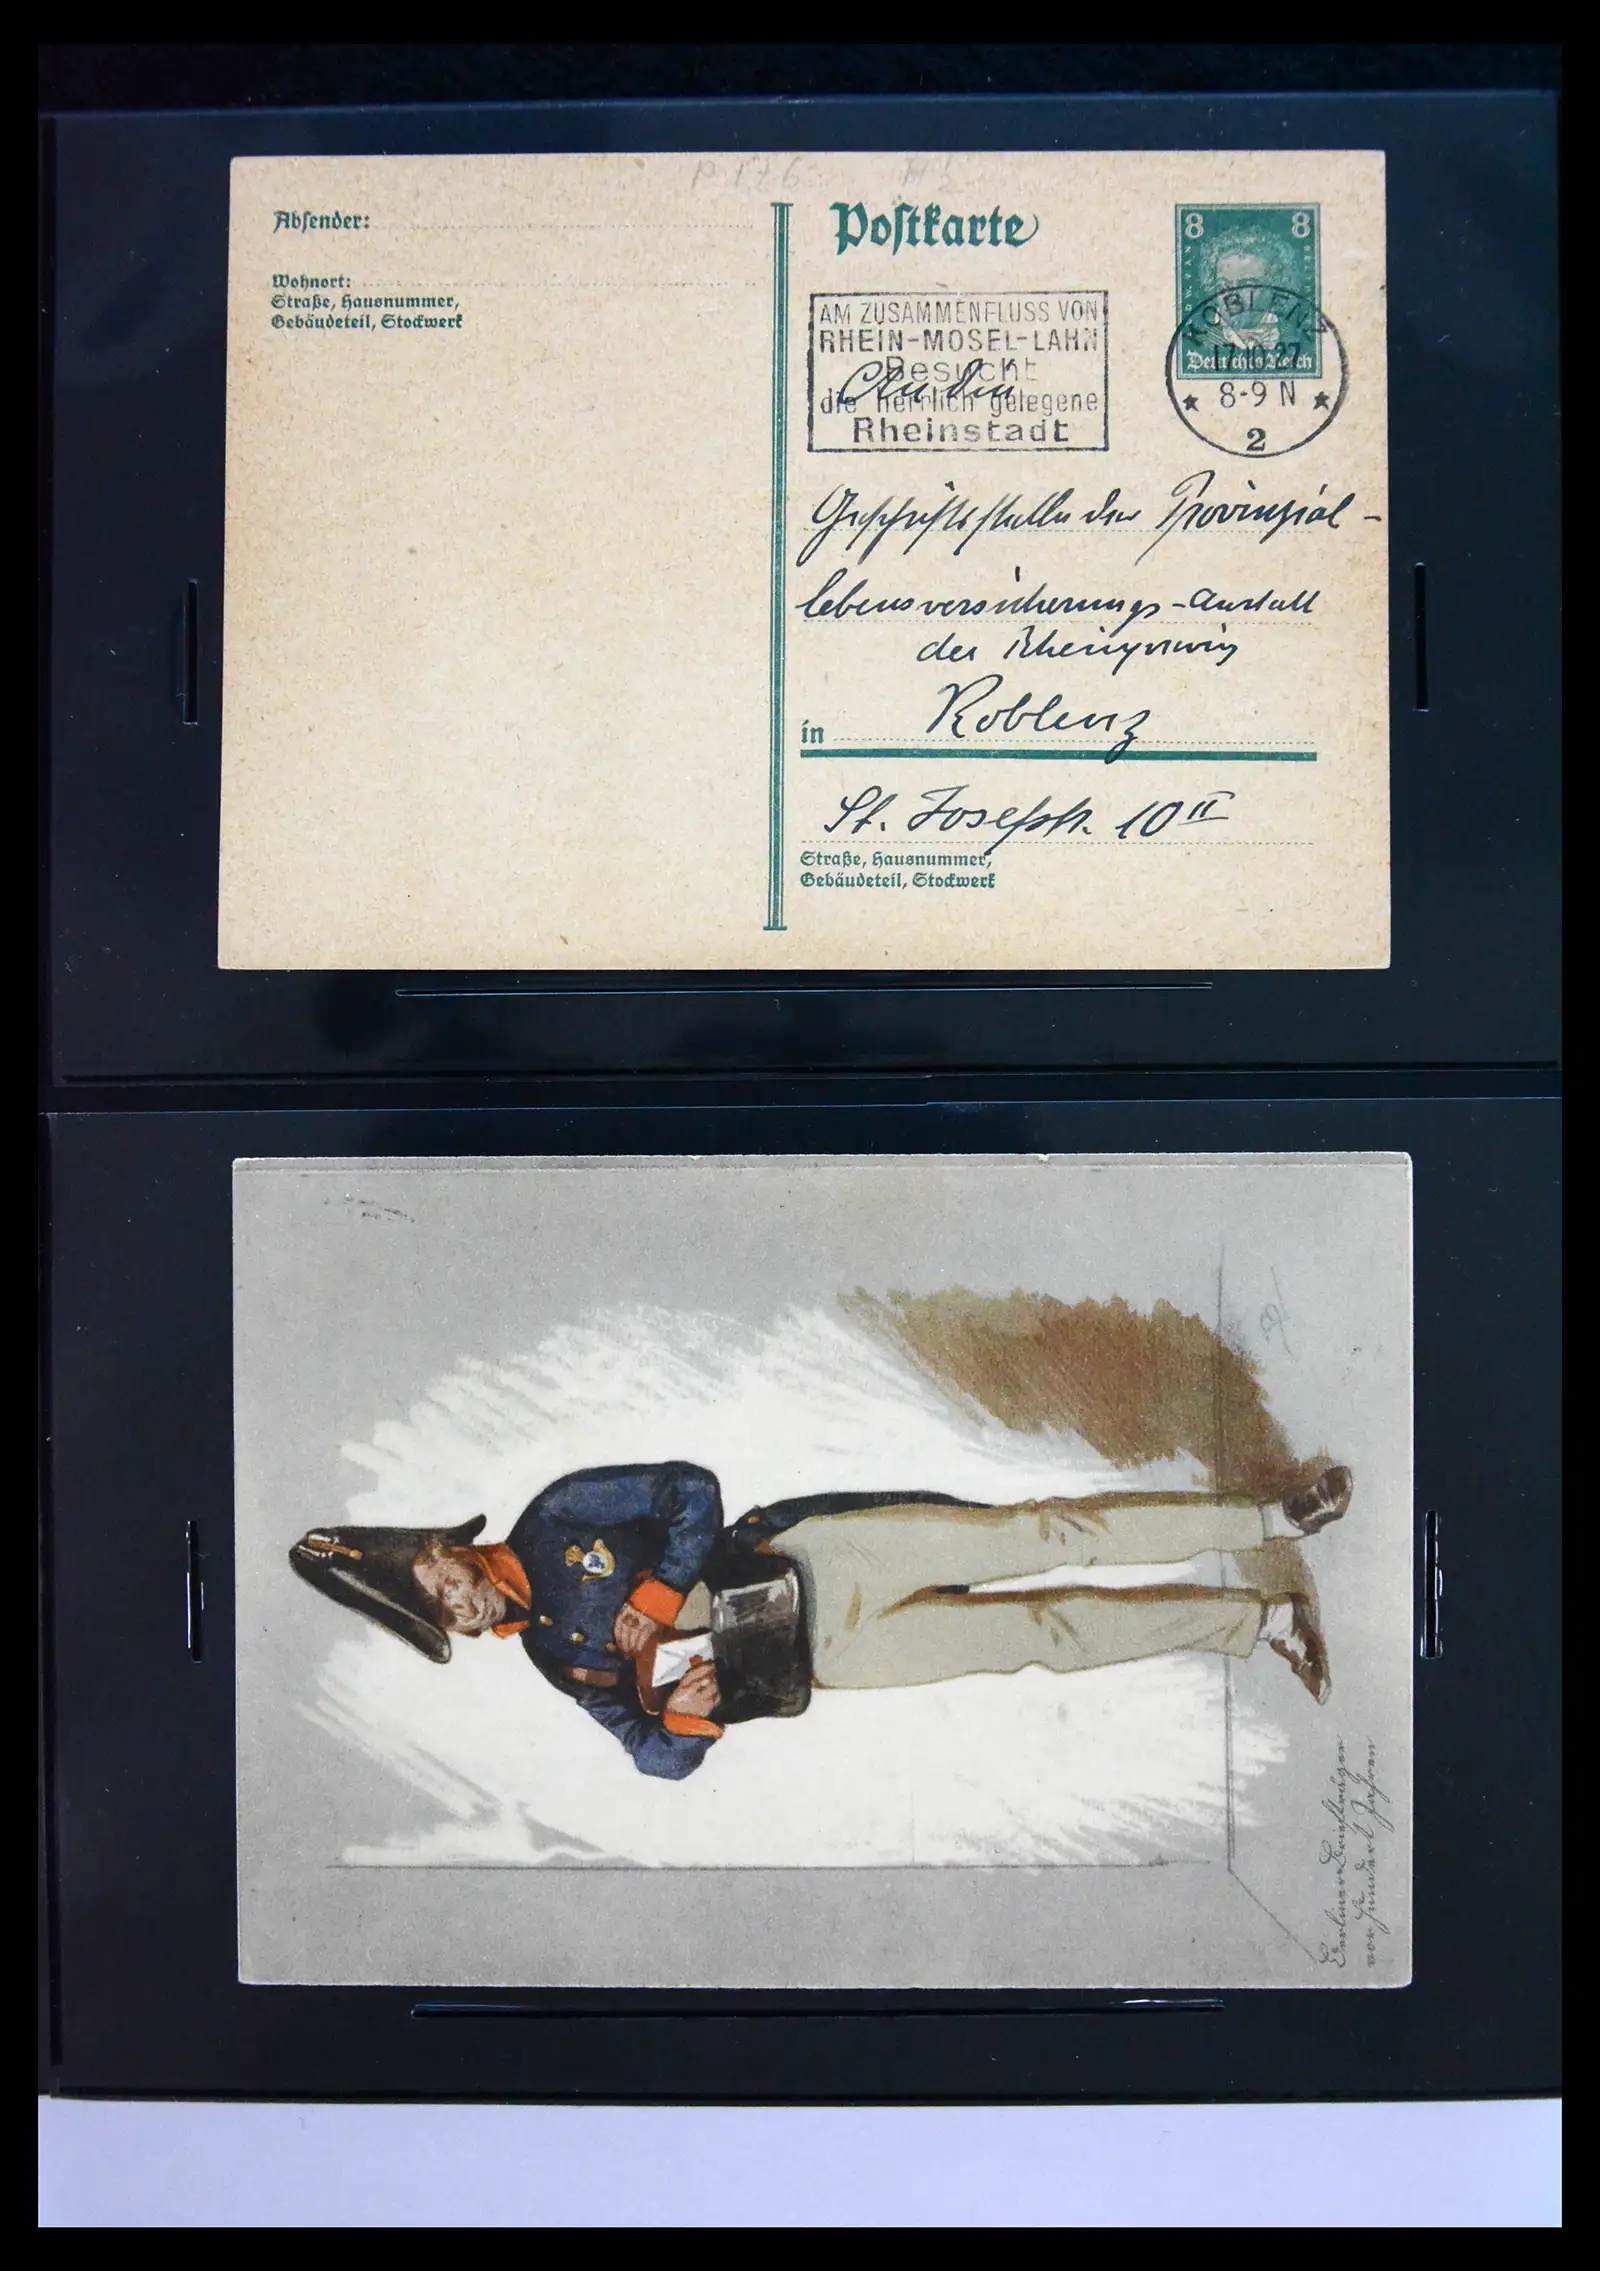 P 176
Absender:
Wohnort:
Straße, Hausnummer,
Gebäudeteil, Stockwerk
Postkarte
8 8
LUDW. VAN
Deutsches Reich
AM ZUSAMMENFLUSS VON
RHEIN-MOSEL-LAHN
Besucht
die herrlich gelegene
Rheinstadt
KOBLENZ
8-9 N
2
An die
Geschäftsstelle der Provinzial-
lebensversicherungs-Anstalt
der Rheinprovinz
in Koblenz
St. Josefstr. 10 II
Straße, Hausnummer,
Gebäudeteil, Stockwerk
Berliner Briefträger
vor hundert Jahren